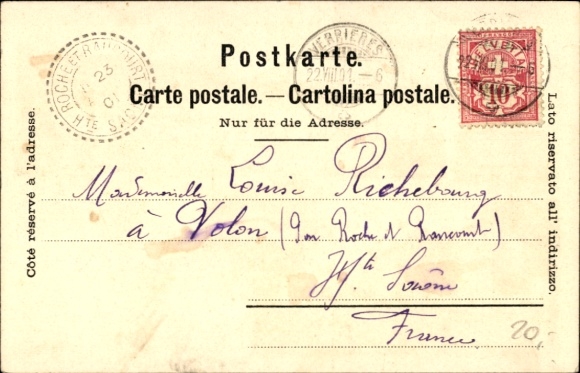 Postkarte.
Carte postale. — Cartolina postale.
Nur für die Adresse.
Côté réservé à l'adresse.
Lato riservato all' indirizzo.
ROCHE ET RAUCOURT
23
01
HTE SNE
VERRIÈRES
22.VIII.01.–6
HELVETIA
10
Mademoiselle Louise Richebourg
à Volon (par Roche et Raucourt)
Hte Saône
France
20,-